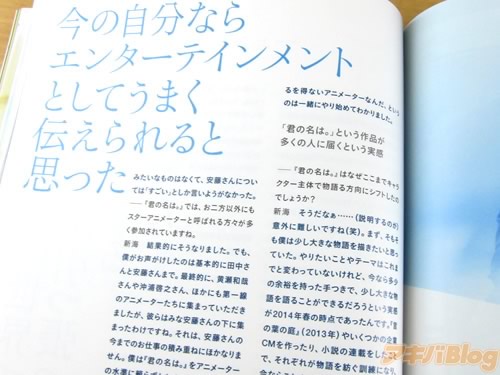 今の自分なら
エンターテインメント
としてうまく
伝えられると
思った
みたいなものはなくて、安藤さんについ
ては「すごい」としか言いようがなかった。
──『君の名は。』では、お二方以外にも
スターアニメーターと呼ばれる方々が多く
参加されていますね。
新海　結果的にそうなりました。でも、
僕がお声がけしたのは基本的に田中さ
んと安藤さんまで。最終的に、黄瀬和哉
さんや沖浦啓之さん、ほかにも第一線
のアニメーターたちに集まっていただき
ましたが、彼らはみな安藤さんの下に集
まったわけですね。それは、安藤さんの
今までのお仕事の積み重ねにほかなりま
せん。僕が『君の名は。』をアニメーターの
るを得ないアニメーターなんだ、という
のは一緒にやり始めてわかりました。
「『君の名は。』という作品が
多くの人に届くという実感
──『君の名は。』はなぜここまでキャラ
クター主体で物語る方向にシフトしたの
でしょうか？
新海　そうだなぁ……（説明するのが）
意外に難しいですね（笑）。まず、そもそ
も僕は少し大きな物語を描きたいと思っ
ていた。やりたいことやテーマはこれま
でと変わっていないけれど、今なら多少
の余裕を持った手つきで、少し大きな物
語を語ることができるだろうという実感
が2014年春の時点であったんです。『言
の葉の庭』（2013年）やいくつかの企業
CMを作ったり、小説の連載をした
で、それぞれが物語を紡ぐ訓練になり、
アキバBlog